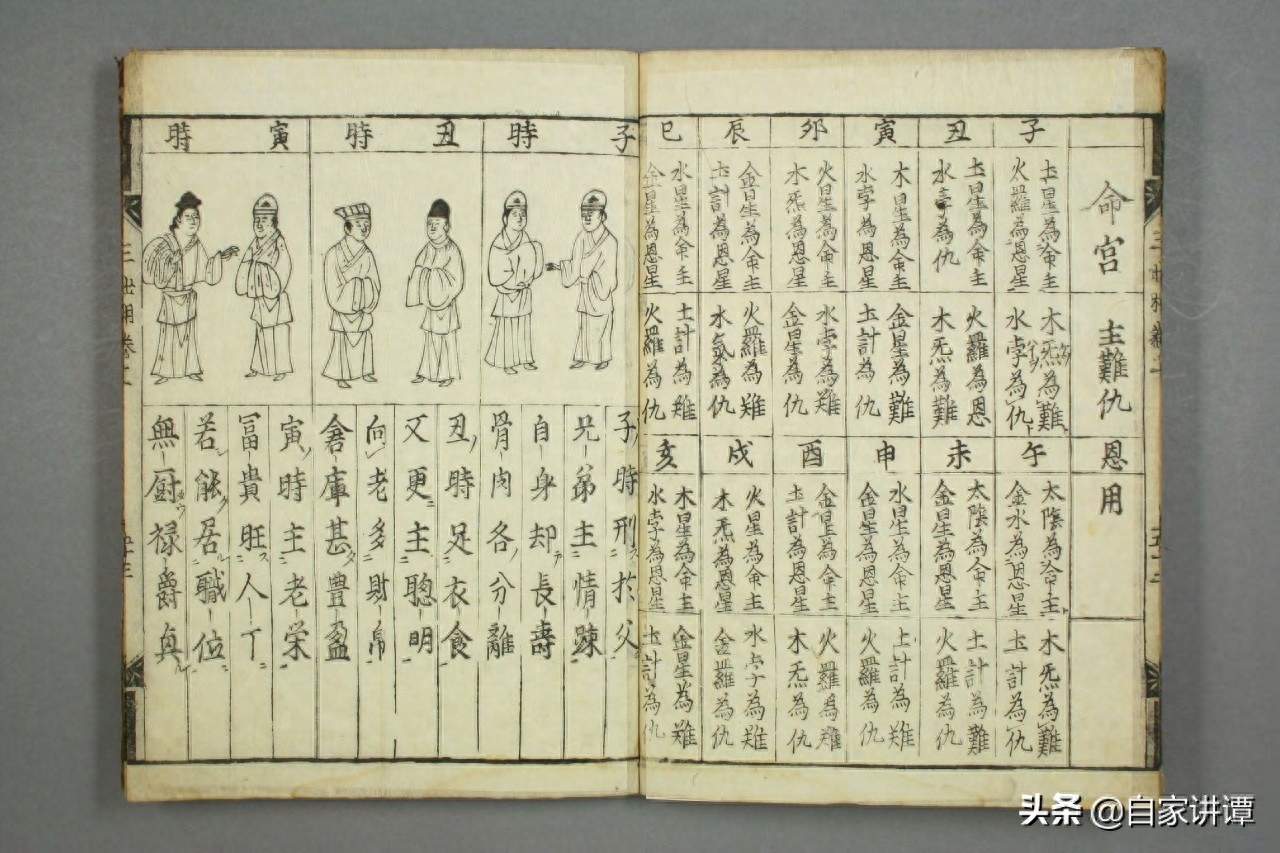 命宮 主難仇 恩用
子
土星為命主
火羅為恩星
木炁為難
水孛為仇
丑
土星為命主
水孛為仇
火羅為恩
木炁為難
寅
木星為命主
水孛為恩星
金星為難
土計為仇
卯
火星為命主
木炁為恩星
水孛為難
金星為仇
辰
金星為命主
土計為恩星
火羅為難
水氣為仇
巳
水星為命主
金星為恩星
土計為難
火羅為仇
午
太陰為命主
金水為恩星
木炁為難
土計為仇
未
太陰為命主
金星為恩星
土計為難
火羅為仇
申
水星為命主
金星為恩星
土計為難
火羅為仇
酉
金星為命主
土計為恩星
火羅為難
木炁為仇
戌
火星為命主
木炁為恩星
水孛為難
金羅為仇
亥
木星為命主
水孛為恩星
金星為難
土計為仇
子時
丑時
寅時
子時刑於父
兄弟主情踈
自身却長壽
骨肉各分離
丑時足衣食
又更主聰明
向老多財帛
倉庫甚豊盈
寅時主老栄
冨貴旺人丁
若能居職位
無厨禄爵真
三世相卷二
头条 @自家讲谭